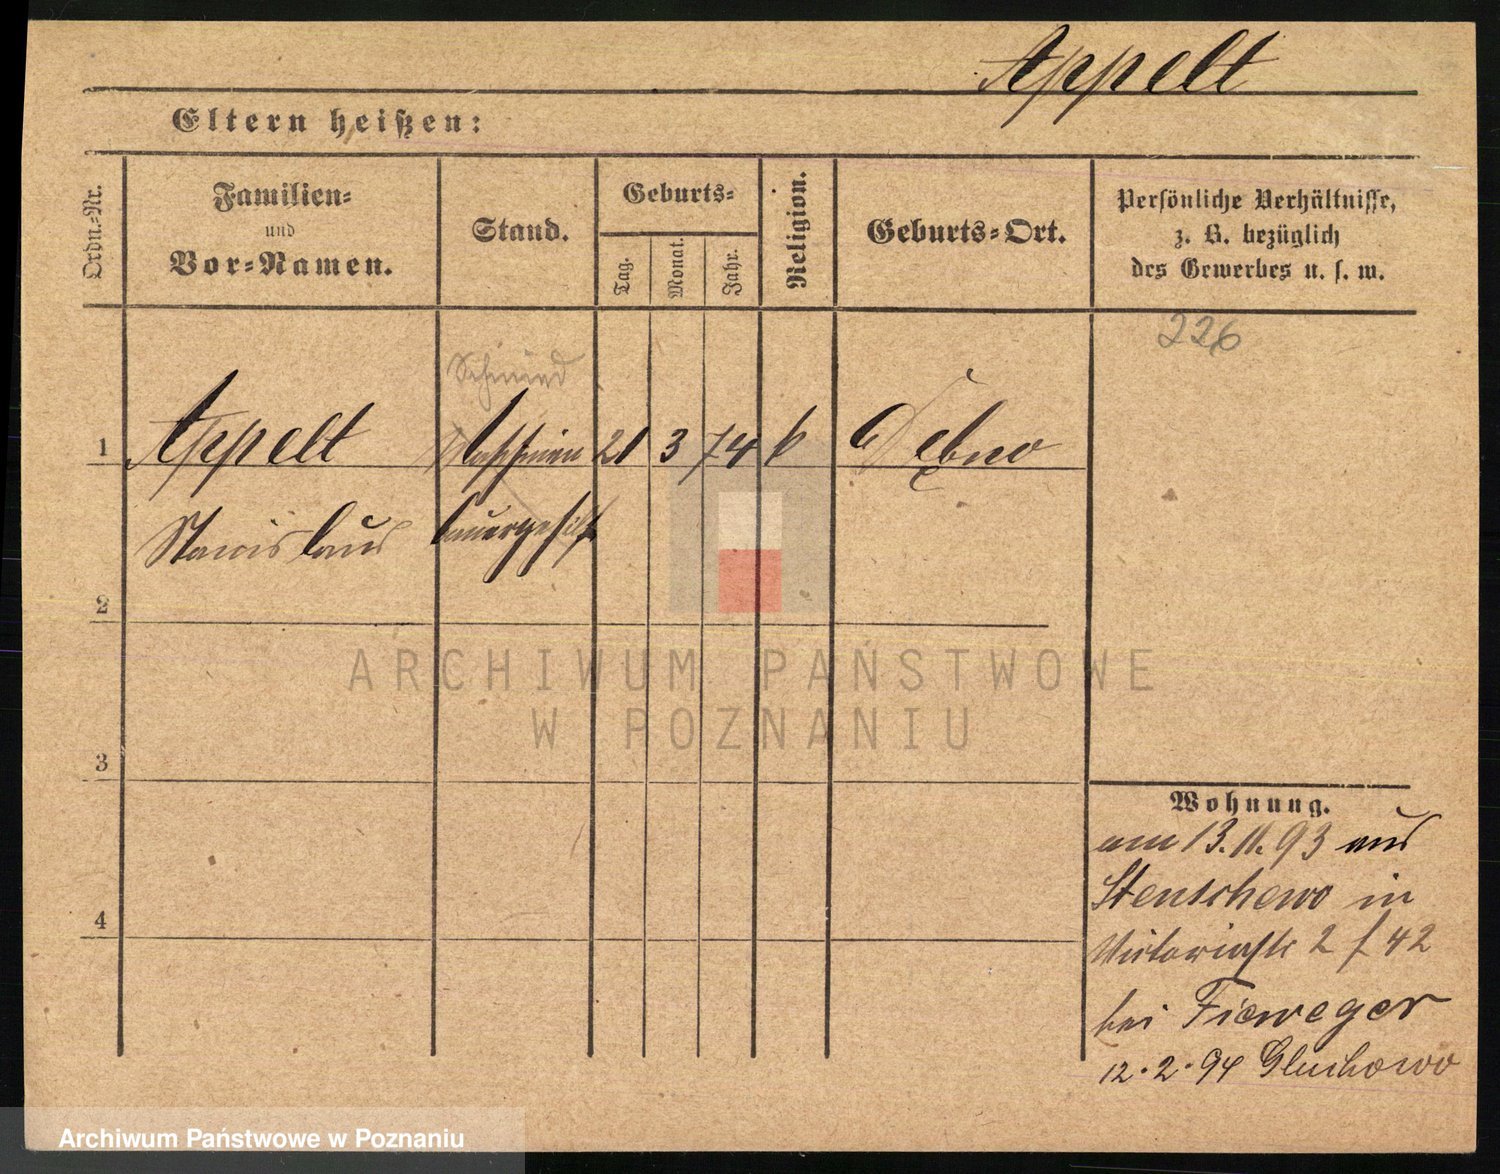 Appelt
Eltern heißen:
Ordn.-Nr.
Familien-
und
Vor-Namen.
Stand.
Geburts-
Tag.
Monat.
Jahr.
Religion.
Geburts-Ort.
Persönliche Verhältnisse,
z. B. bezüglich
des Gewerbes u. s. w.
226
Schmied
1 Appelt Maschinen 21 3 74 k Dębno
Stanislaus bauergehilfe
2
3
4
Wohnung.
am 13.11.93 aus
Stenschewo in
Victoriastr 2 f 42
bei Fieweger
12.2.94 Gluchowo
ARCHIWUM PAŃSTWOWE
W POZNANIU
Archiwum Państwowe w Poznaniu